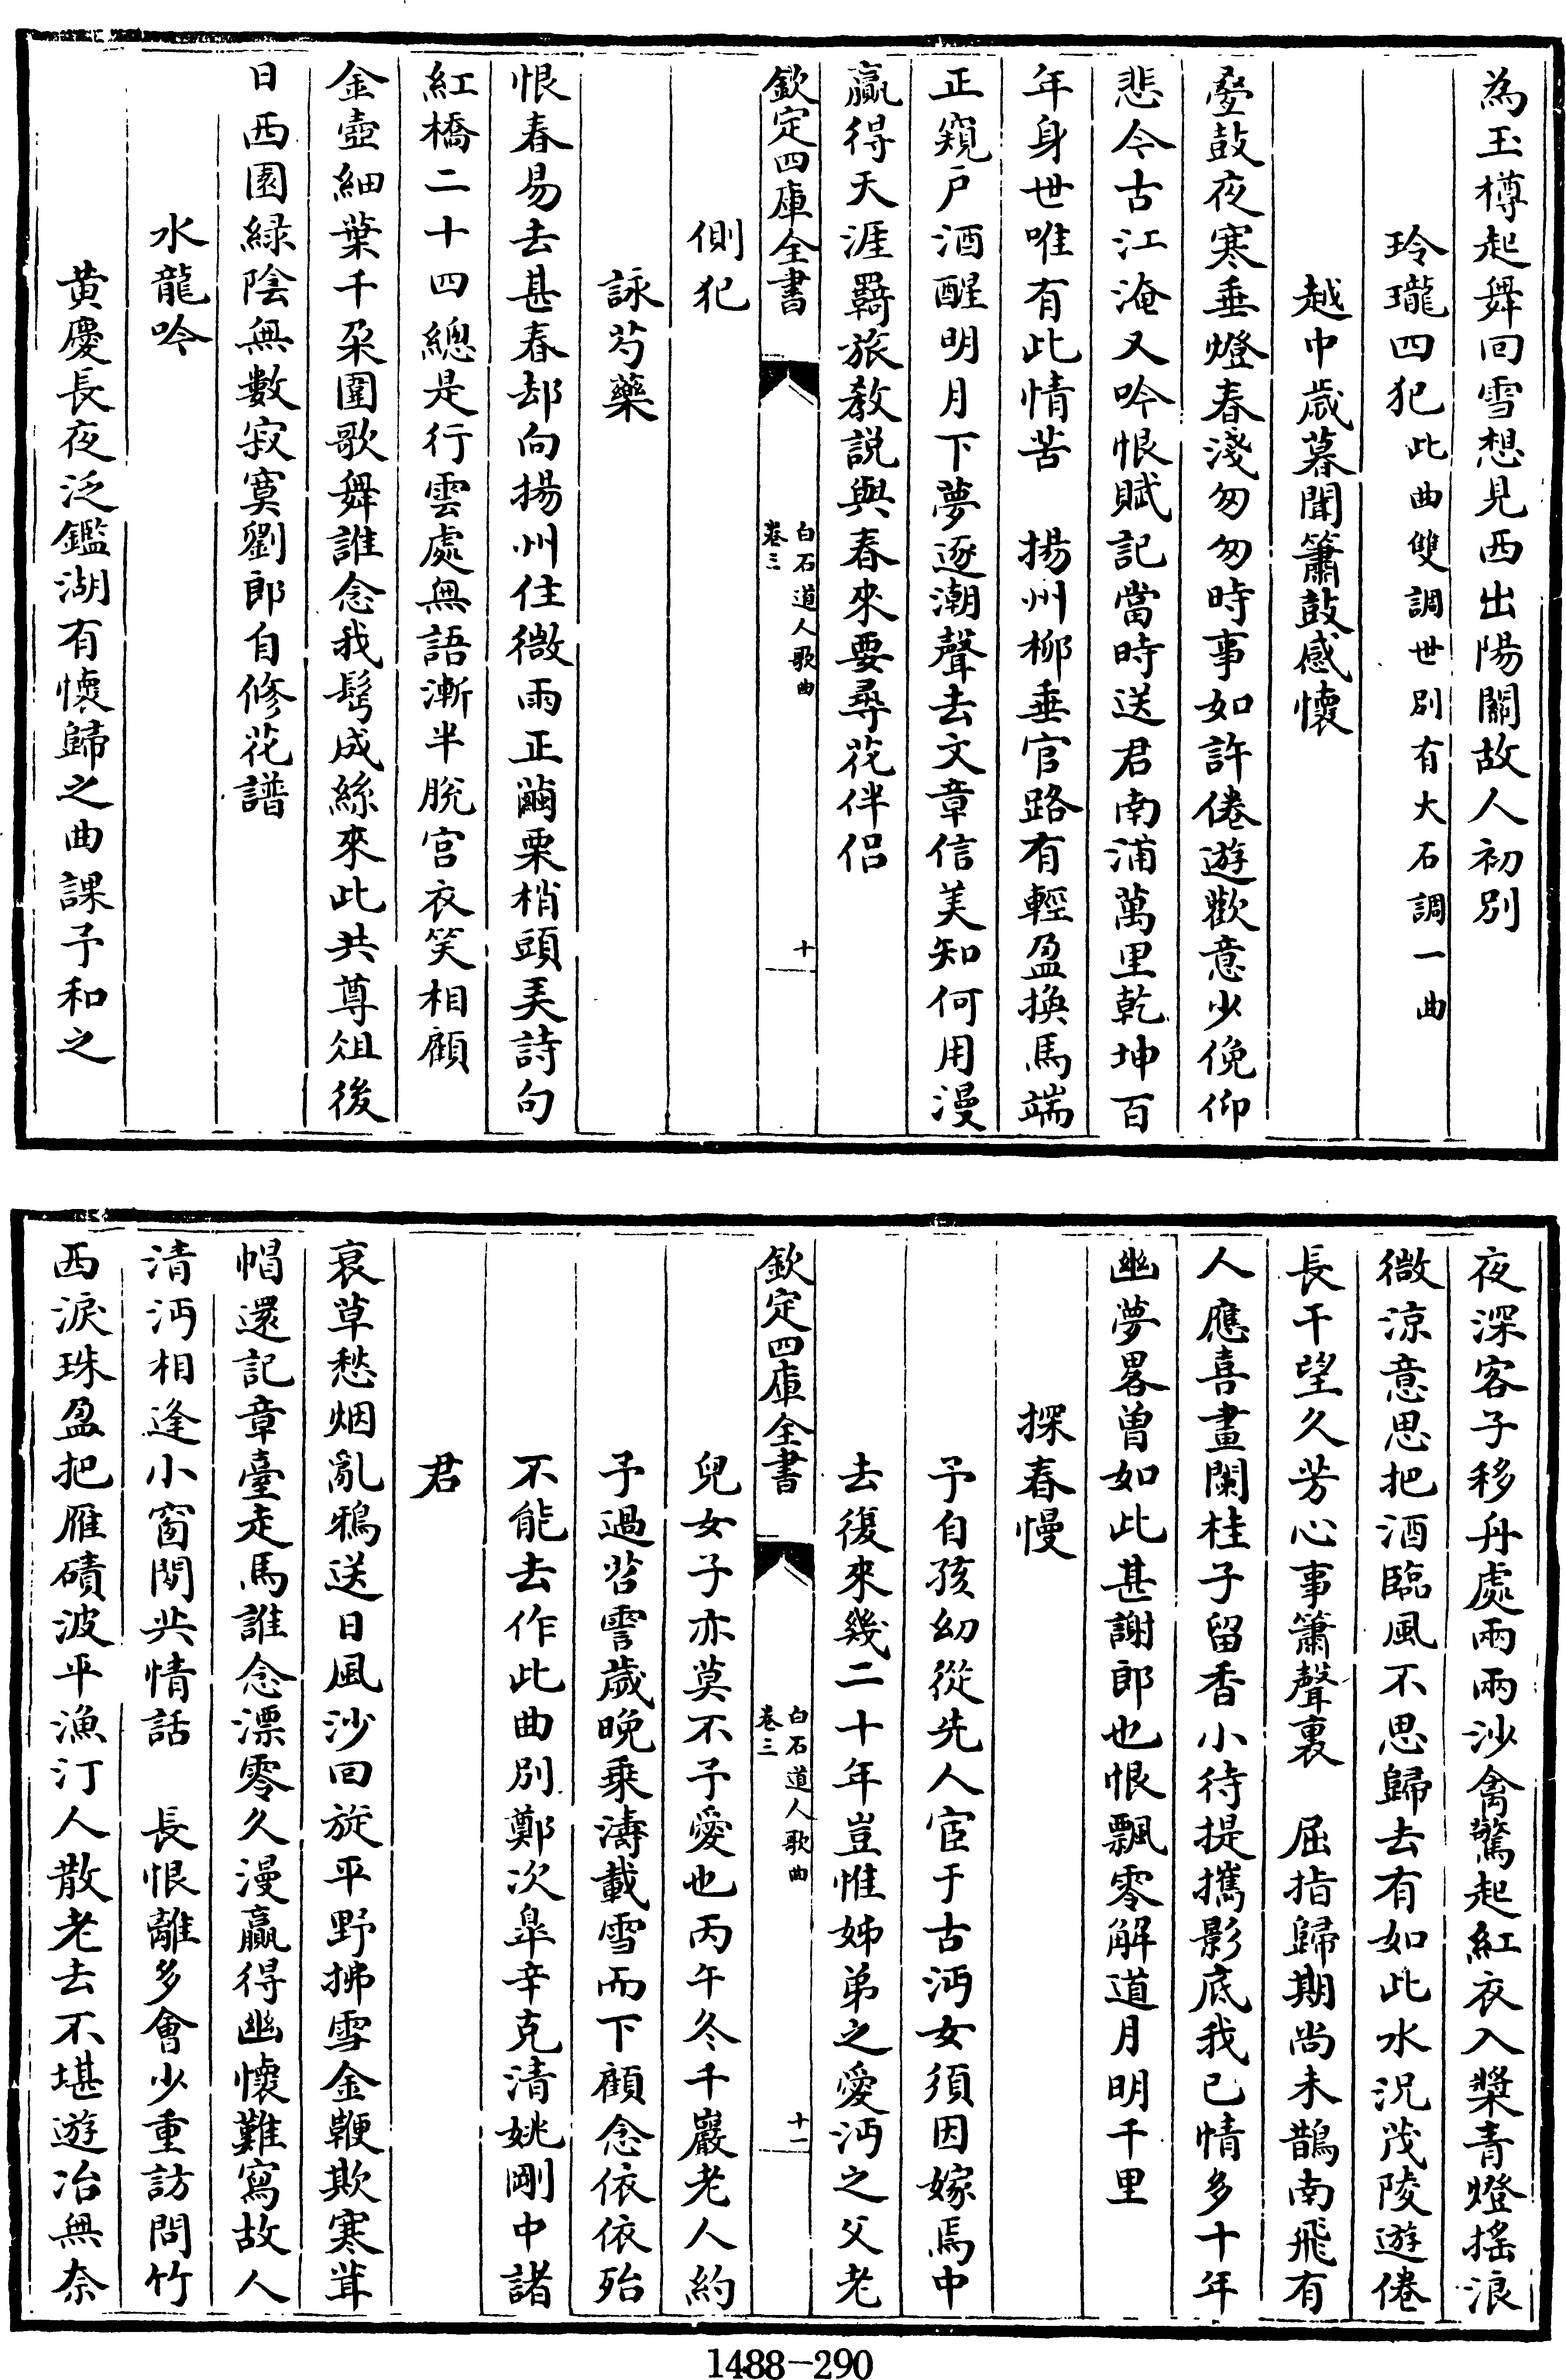 為玉樽起舞回雪想見西出陽關故人初別
玲瓏四犯此曲雙調世別有大石調一曲
越中歲暮聞簫鼓感懷
疊鼓夜寒垂燈春淺匆匆時事如許倦遊歡意少俛仰
悲今古江淹又吟恨賦記當時送君南浦萬里乾坤百
年身世唯有此情苦　揚州柳垂官路有輕盈換馬端
正窺戶酒醒明月下夢逐潮聲去文章信美知何用漫
贏得天涯羇旅教説與春來要尋花伴侣
欽定四庫全書
白石道人歌曲
卷三
十
側犯
詠芍藥
恨春易去甚春却向揚州住微雨正繭栗梢頭美詩句
紅橋二十四總是行雲處無語漸半脫宫衣笑相顧
金壺細葉千朶圍歌舞誰念我鬂成絲來此共尊俎後
日西園緑陰無數寂寞劉郎自修花譜
水龍吟
黄慶長夜泛鑑湖有懷歸之曲課予和之
夜深客子移舟處兩兩沙禽驚起紅衣入槳青燈搖浪
微涼意思把酒臨風不思歸去有如此水況茂陵遊倦
長干望久芳心事簫聲裏　屈指歸期尚未鵲南飛有
人應喜畫闌桂子留香小待提攜影底我已情多十年
幽夢畧曽如此甚謝郎也恨飄零解道月明千里
探春慢
予自孩幼從先人宦于古沔女須因嫁焉中
去復來幾二十年豈惟姊弟之愛沔之父老
欽定四庫全書
白石道人歌曲
卷三
十一
兒女子亦莫不予愛也丙午冬千巖老人約
予過苕霅歲晚乗濤載雪而下顧念依依殆
不能去作此曲別鄭次臯辛克清姚剛中諸
君
衰草愁烟亂鴉送日風沙回旋平野拂雪金鞭欺寒茸
帽還記章臺走馬誰念漂零久漫贏得幽懷難寫故人
清沔相逢小窗閒共情話　長恨離多會少重訪問竹
西淚珠盈把雁磧波平漁汀人散老去不堪遊冶無奈
1488—290